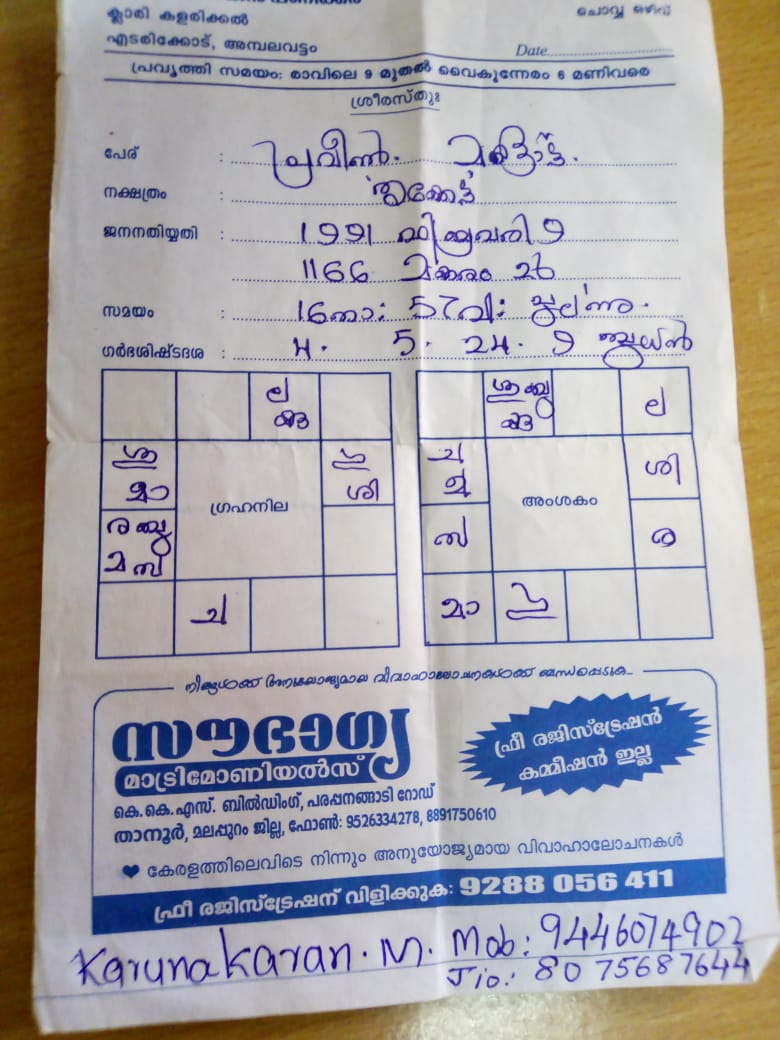 ക്ലാരി കളരിക്കൽ
ചൊവ്വ ഒഴിവ്
എടരിക്കോട്, അമ്പലവട്ടം
Date
പ്രവൃത്തി സമയം: രാവിലെ 9 മുതൽ വൈകുന്നേരം 6 മണിവരെ
ശ്രീരസ്തുഃ
പേര് : പ്രവീൺ.
നക്ഷത്രം : തൃക്കേട്ട
ജനനതിയ്യതി : 1991 ഫിബ്രുവരി 9
1166 മകരം 26
സമയം : 16നാ: 57വി: പുലർന്നു.
ഗർഭശിഷ്ടദശ : 4. 5. 24. 9 ബുധൻ
ല
കു
ഗു
മാ
ശി
ഗ്രഹനില
ച
ല
ശി
അംശകം
മാ
നിങ്ങൾക്ക് അനുയോജ്യമായ വിവാഹാലോചനകൾക്ക് ബന്ധപ്പെടുക...
സൗഭാഗ്യ
മാട്രിമോണിയൽസ്
ഫ്രീ രജിസ്ട്രേഷൻ
കമ്മീഷൻ ഇല്ല
കെ.കെ.എസ്. ബിൽഡിംഗ്, പരപ്പനങ്ങാടി റോഡ്
താനൂർ, മലപ്പുറം ജില്ല, ഫോൺ: 9526334278, 8891750610
കേരളത്തിലെവിടെ നിന്നും അനുയോജ്യമായ വിവാഹാലോചനകൾ
ഫ്രീ രജിസ്ട്രേഷന് വിളിക്കുക: 9288 056 411
Karunakaran. M. Mob: 9446074902
Jio.: 80 75687644